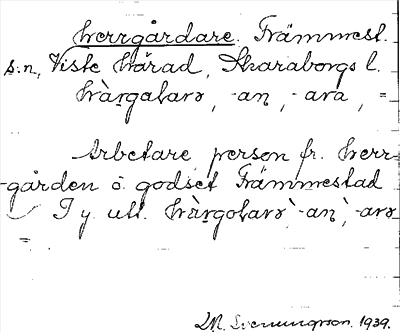 herrgårdare. Främmest.
s:n, Viste härad, Skaraborgs l.
hàrgaları, -an, -ara, =
Arbetare, person fr. herr-
gården o. godset Främmestad
I y. utt. -an, -arə
Svenningsson. 1939.